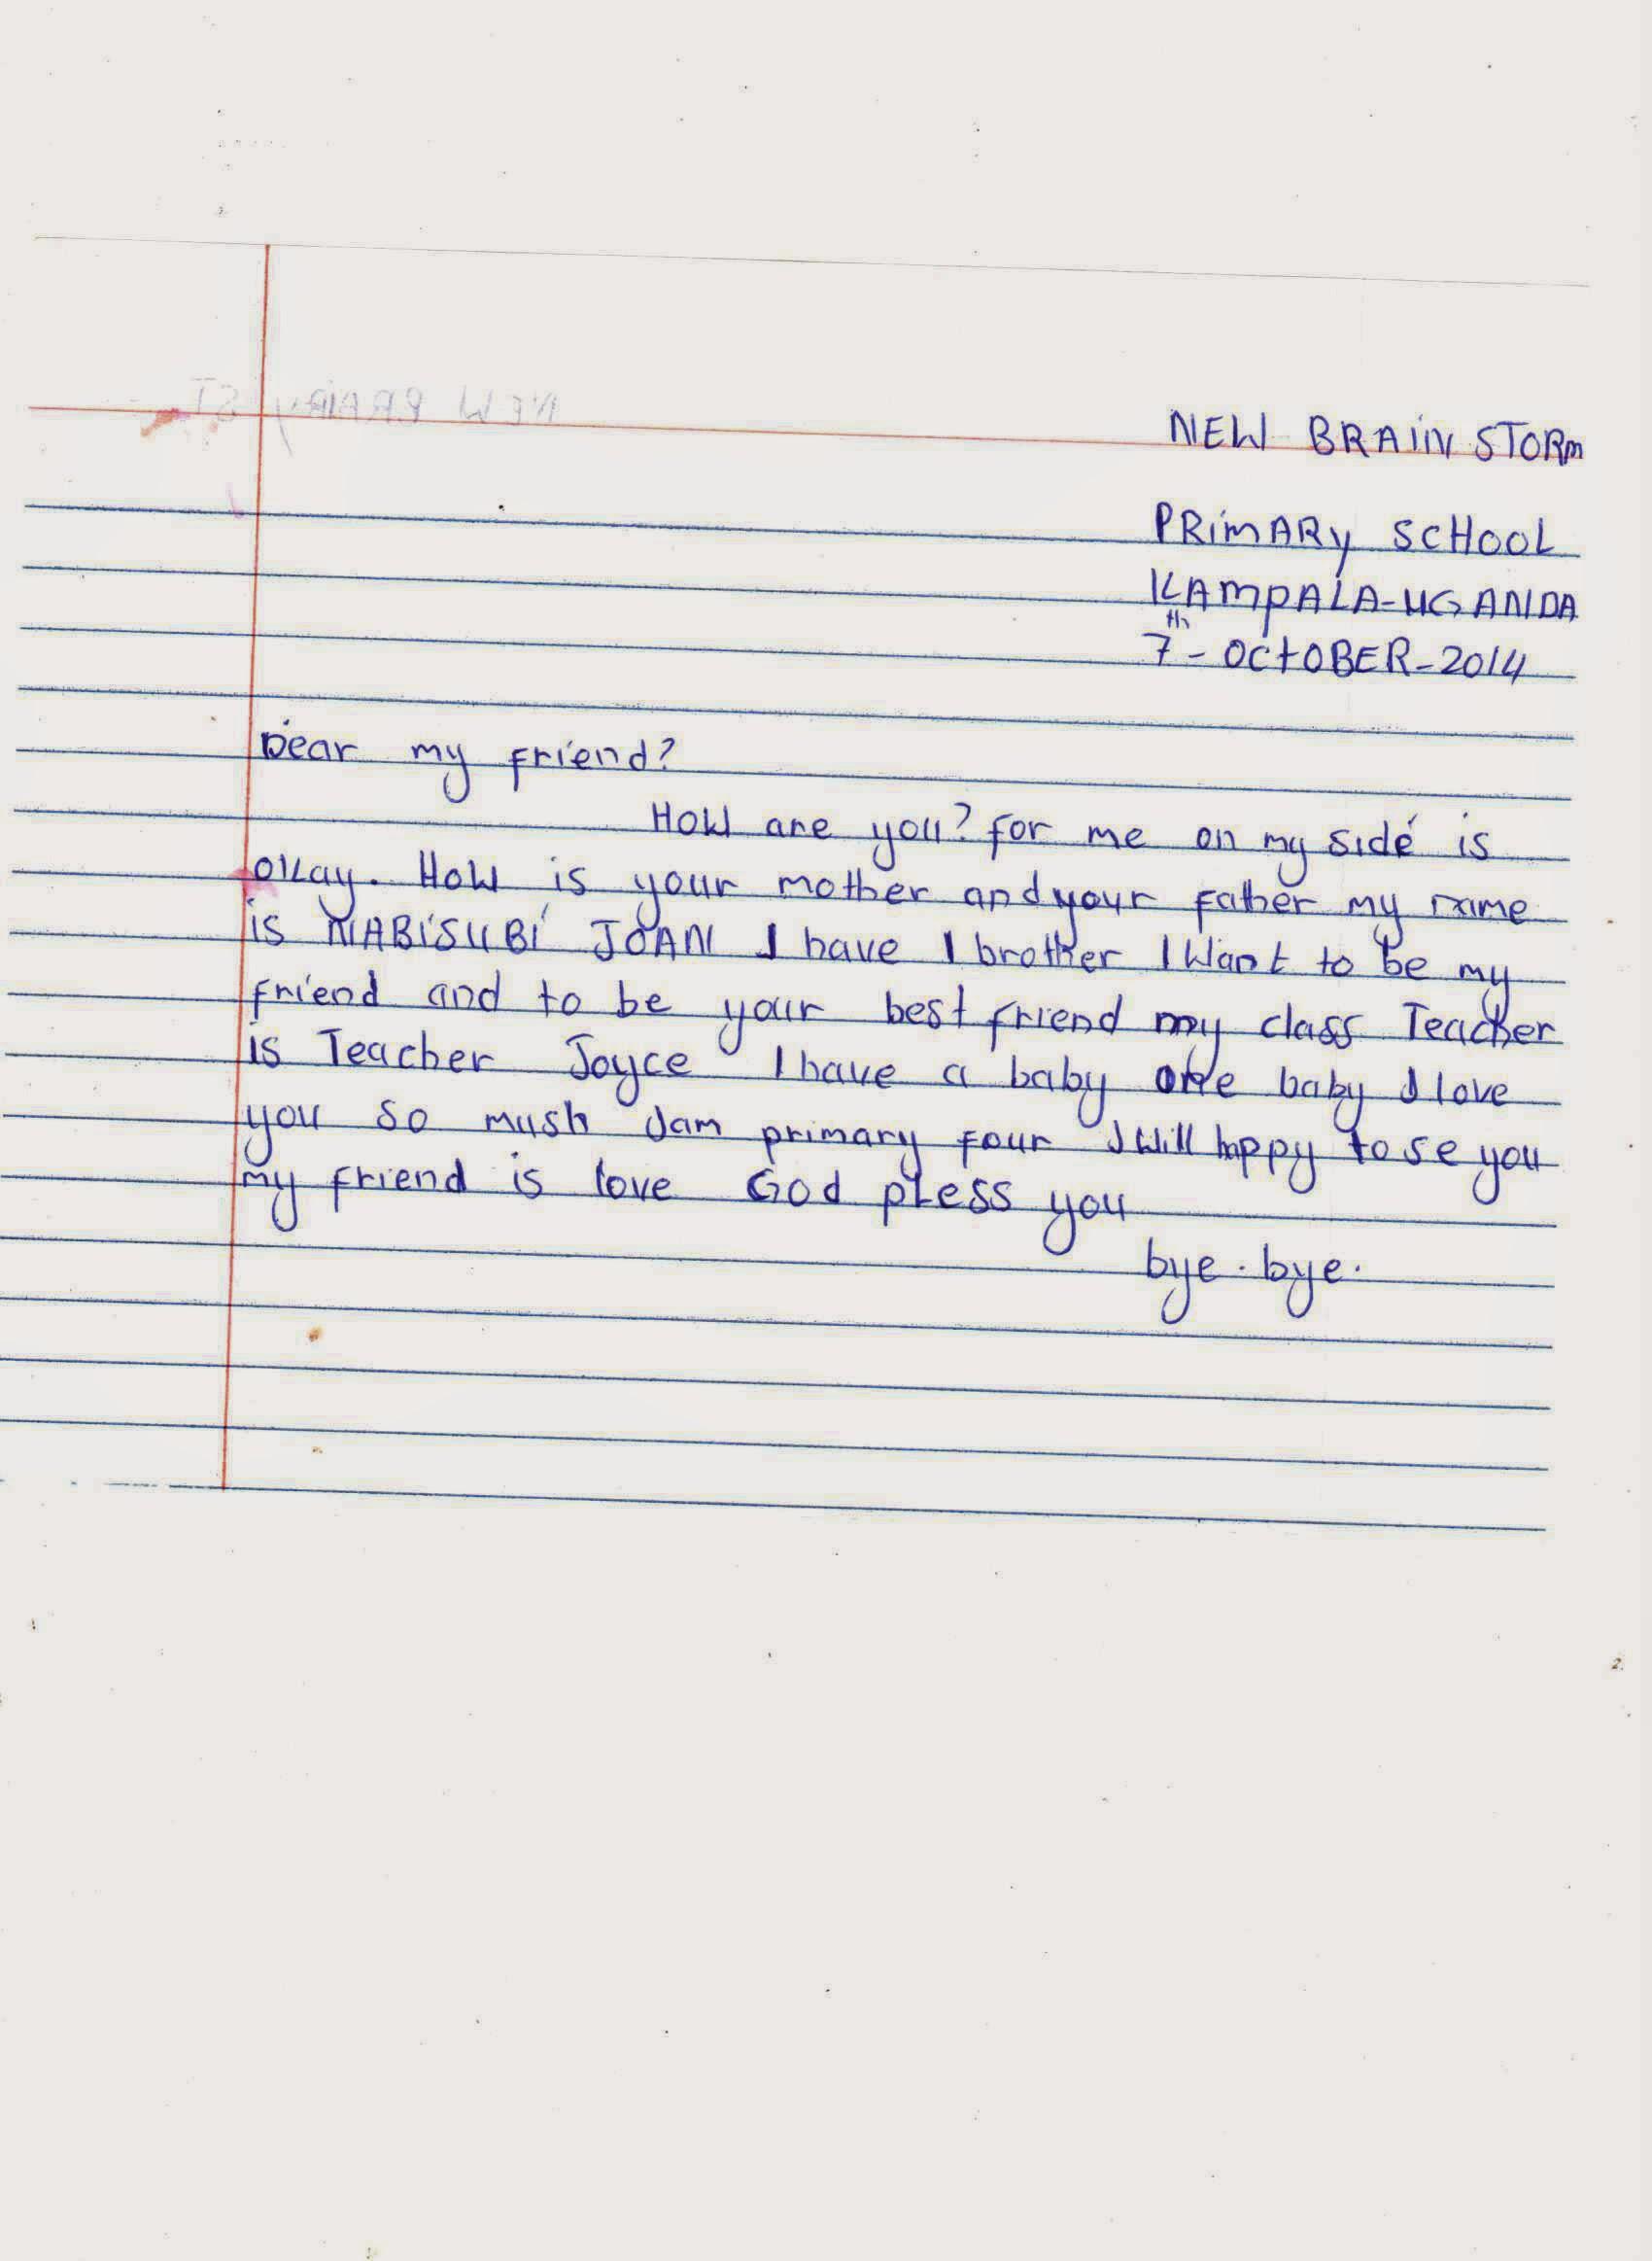 NEW BRAIN STORM
PRIMARY SCHOOL
KAMPALA-UGANDA
7th - OCTOBER-2014
Dear my friend?
How are you? for me on my side is
okay. How is your mother and your father my name
is NABISUBI JOAN I have 1 brother I want to be my
friend and to be your best friend my class Teacher
is Teacher Joyce I have a baby one baby I love
you so mush Iam primary four I will happy to se you
my friend is love God pless you
bye. bye.